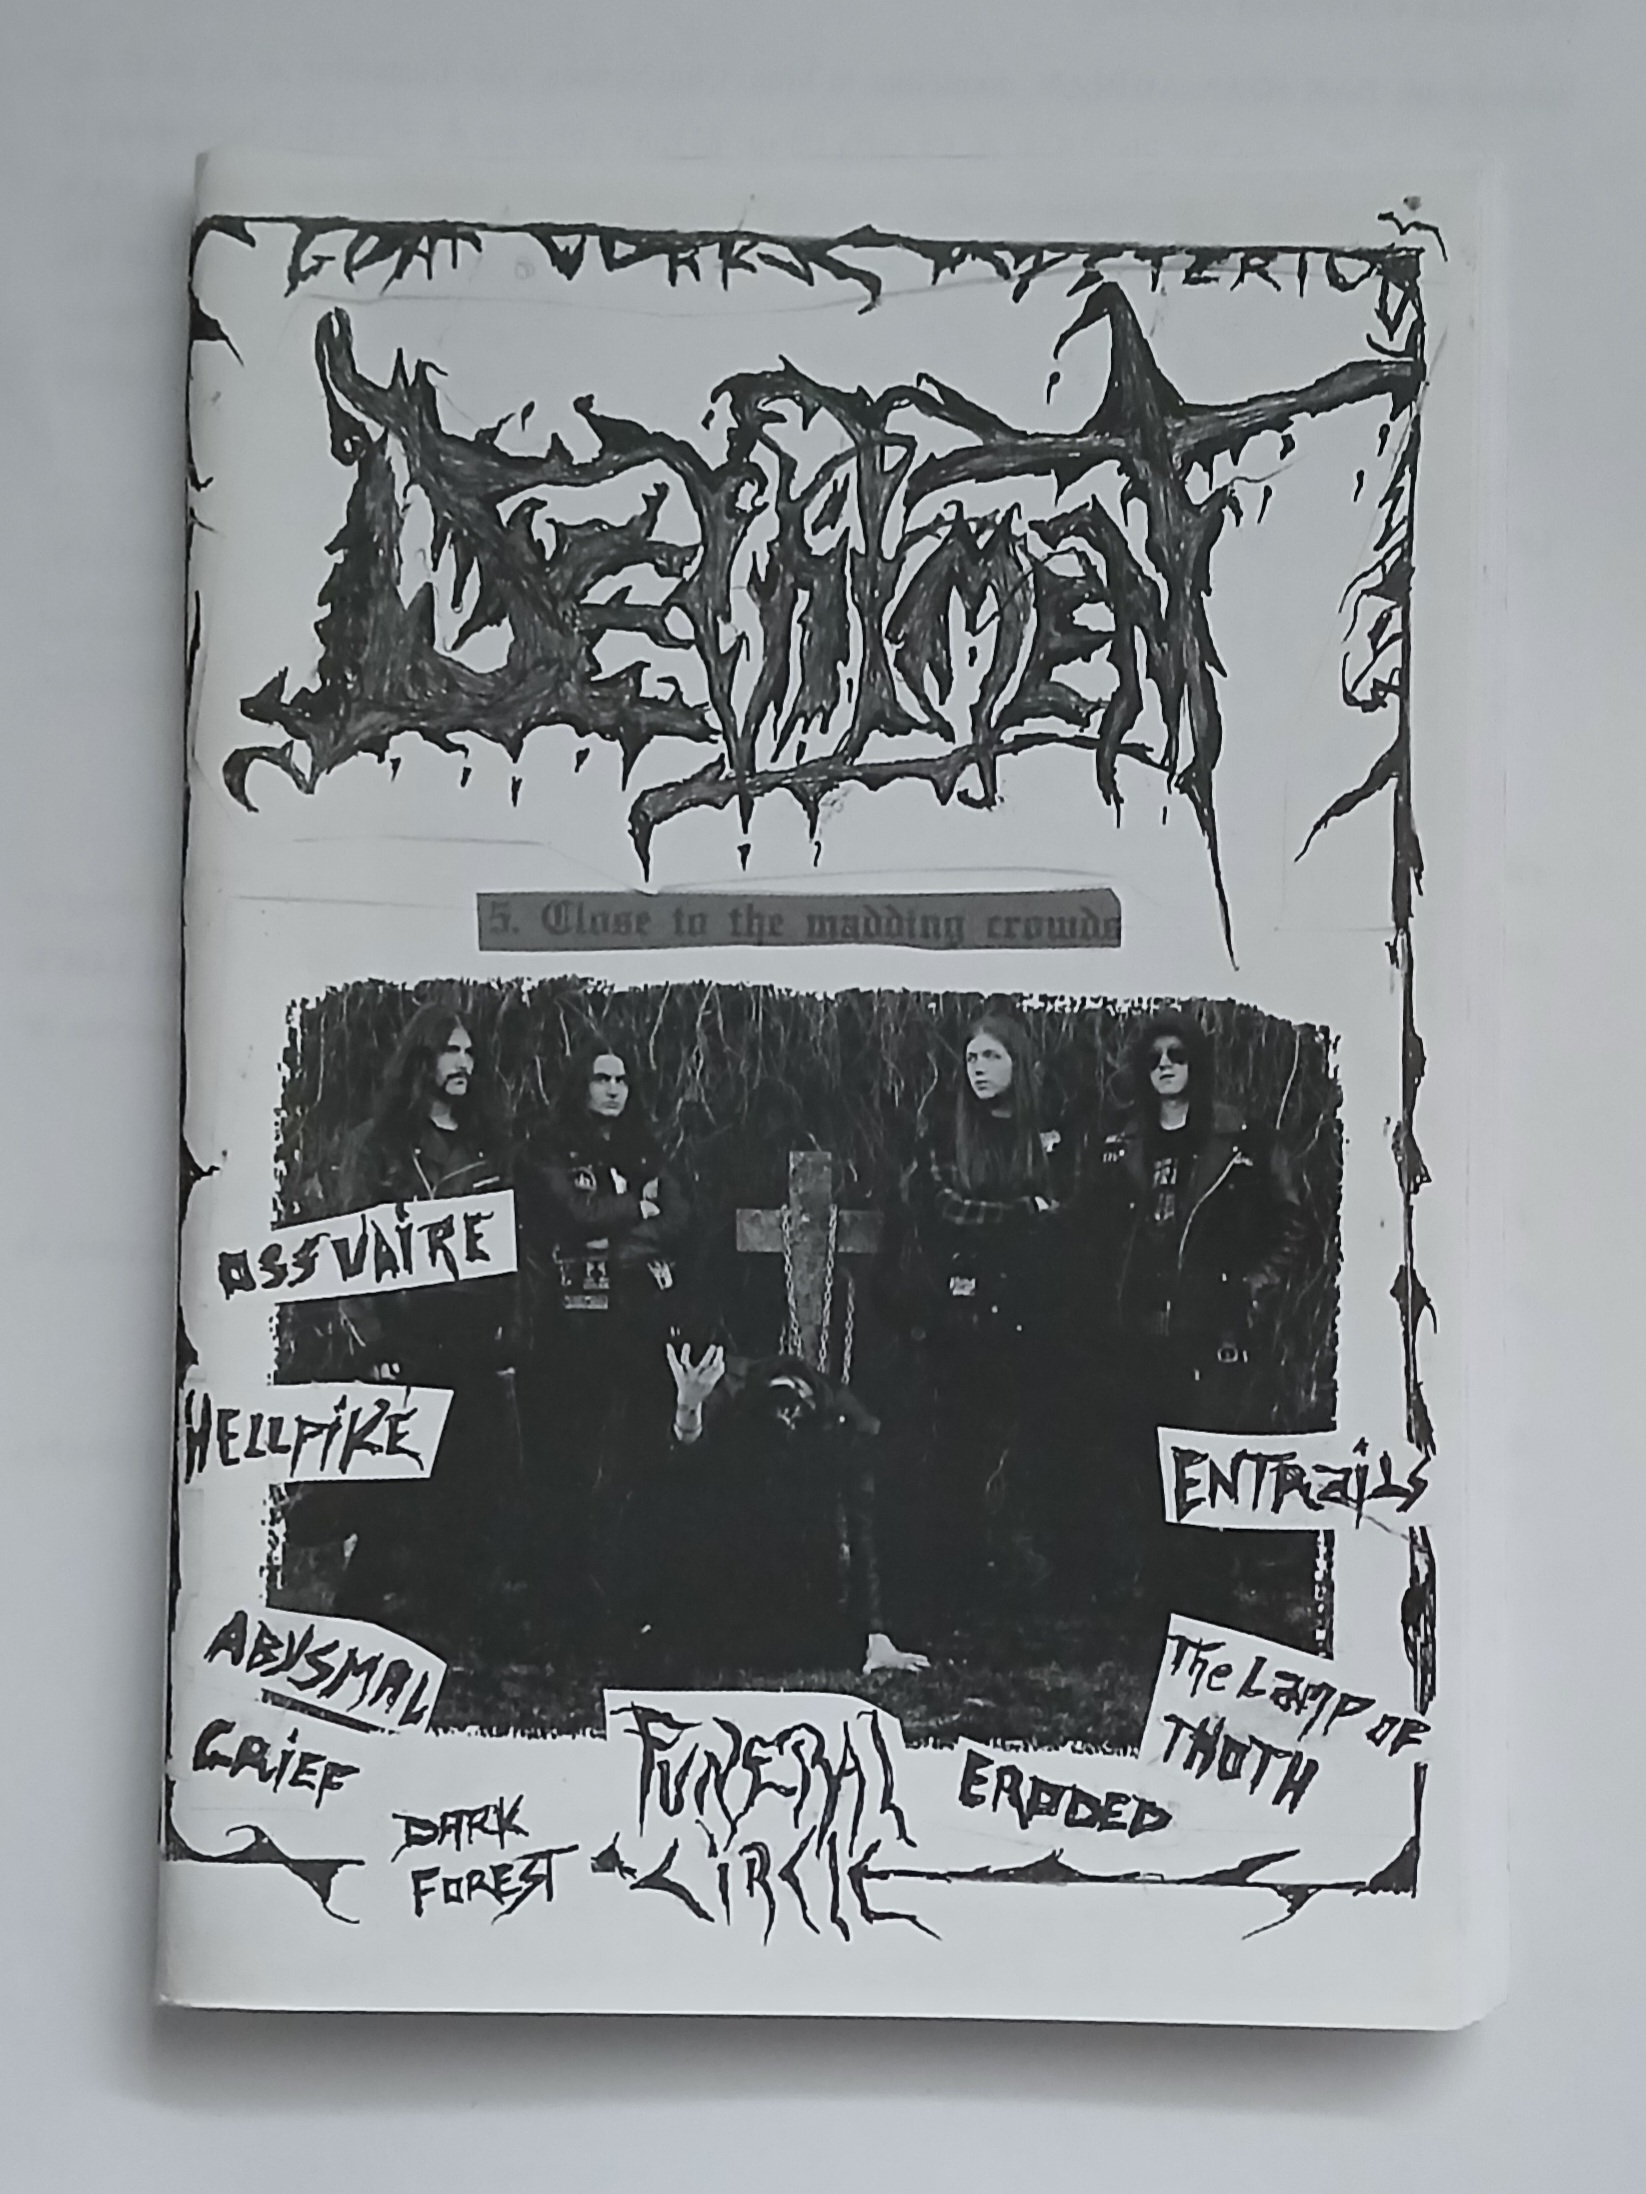 GOAT WORKS
DEVILMENT
5. Close to the madding crowds
OSSUAIRE
HELLPIKE
ENTRAILS
ABYSMAL
GRIEF
The LAMP OF
THOTH
DARK
FOREST
FUNERAL
CIRCLE
ERODED